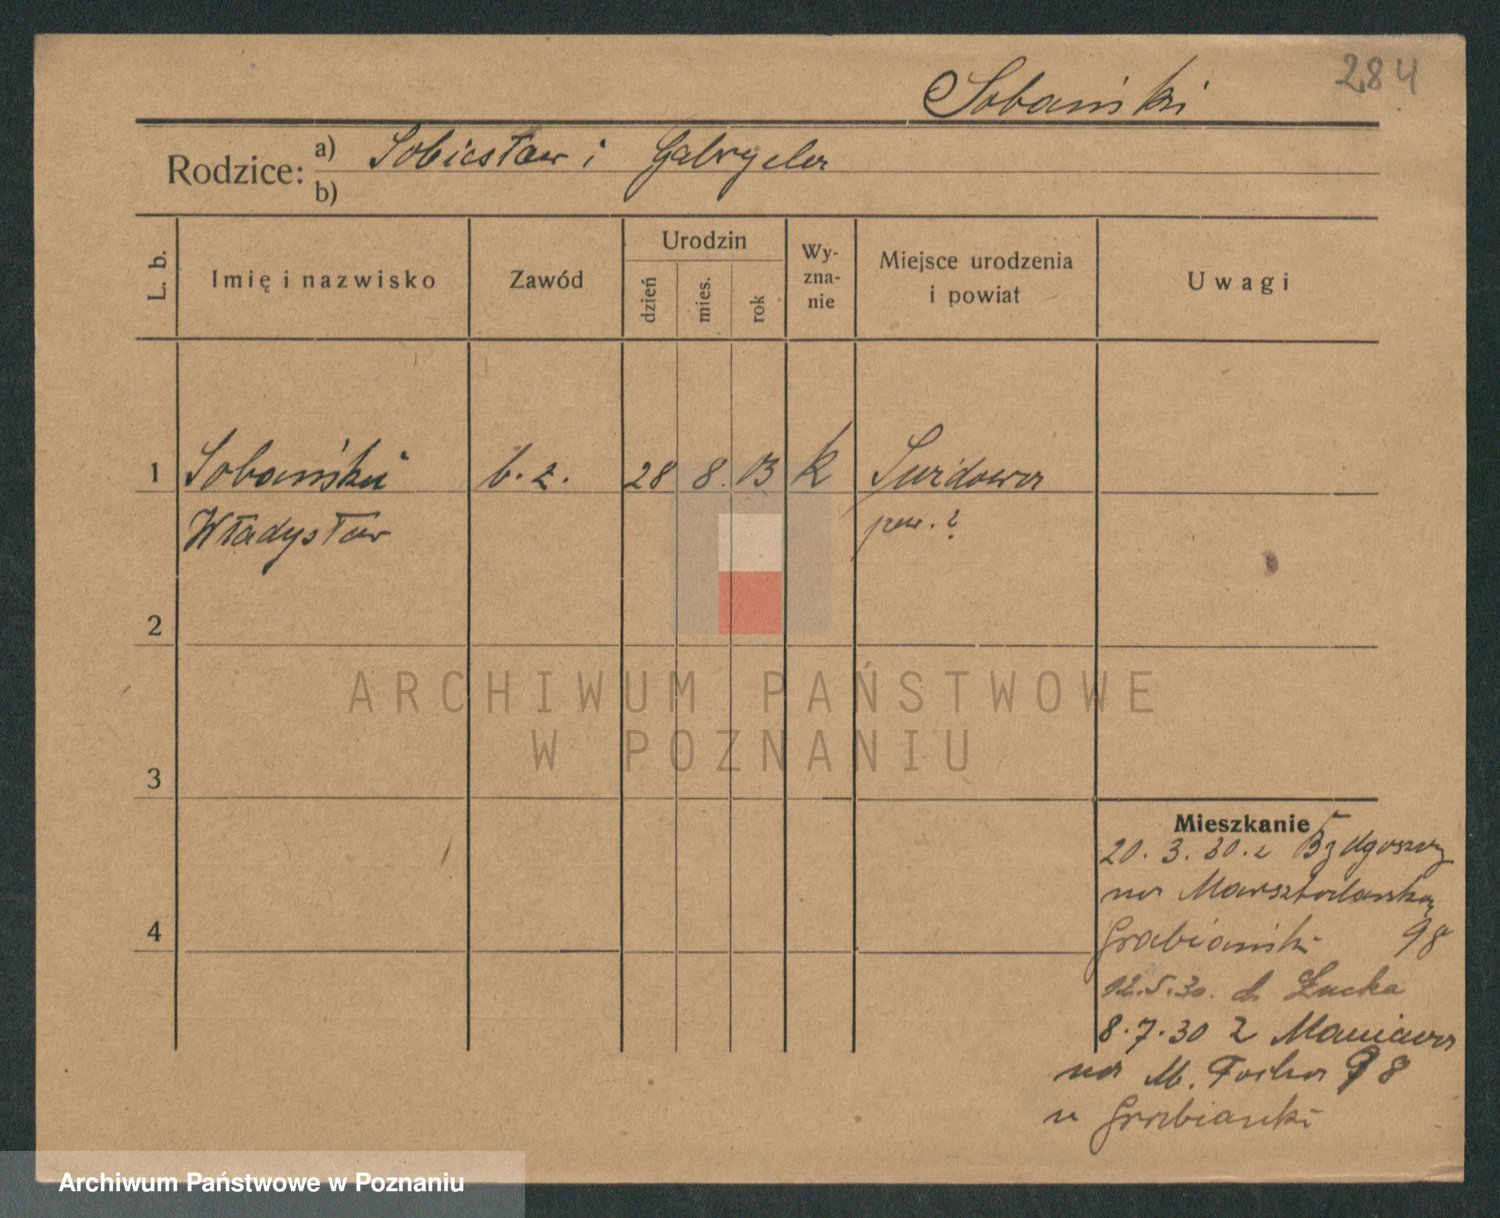 284
Sobański
Rodzice: a) Sobiesław i Gabryela
b)
L. b.
Imię i nazwisko
Zawód
Urodzin
dzień
mies.
rok
Wy-
zna-
nie
Miejsce urodzenia
i powiat
Uwagi
1 Sobański b. z. 28 8. 13 k
Władysław pow. ?
2
3
4
ARCHIWUM PAŃSTWOWE
W POZNANIU
Mieszkanie
20. 3. 30. z Bydgoszczy
na
Grabiański 98
12.5.30. do Łucka
8.7.30 z
na M. Focha 98
u Grabianki
Archiwum Państwowe w Poznaniu